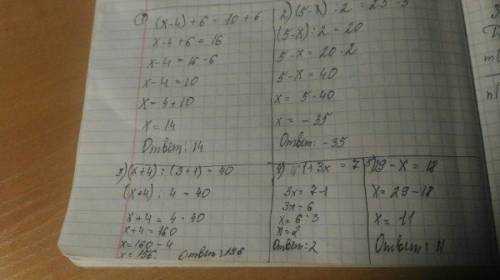 1) (x-4)+6 = 10+6
x-4+6=16
x-4=16-6
x-4=10
x=4+10
x=14
Ответ: 14
2) (5-x):2 = 25-5
(5-x):2=20
5-x=20·2
5-x=40
x= 5-40
x= -35
Ответ: -35
3) (x+4):(3+1)=40
(x+4):4=40
x+4=4·40
x+4=160
x=160-4
x=156
Ответ: 156
4) 1+3x=7
3x=7-1
3x=6
x=6:3
x=2
Ответ: 2
5) 29-x=18
x=29-18
x=11
Ответ: 11